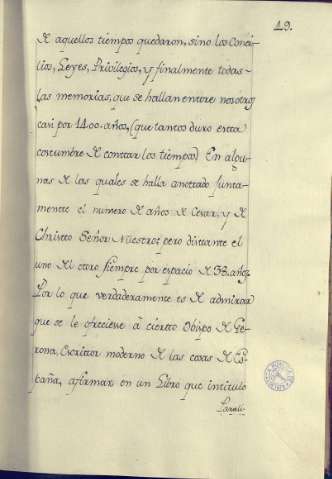 19.
de aquellos tiempos quedaron, sino los Conci-
lios, Leyes, Privilegios, y finalmente todas
las memorias, que se hallan entre nosotros
casi por 1400. años, (que tanto duro esta
costumbre de contar los tiempos) En algu-
nas de las quales se halla anotado junta-
mente el numero de años de Cesar, y de
Christo Señor Nuestro; pero distante el
uno del otro siempre por espacio de 38. años.
Por lo que verdaderamente es de admirar
que se le ofreciese à cierto Obispo de Ge-
rona, Escritor moderno de las cosas de Es-
paña, afirmar en un Libro que intitulo
Parali-